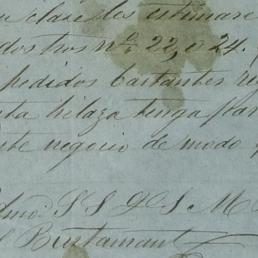 clase les estimare
dos tros nº 22, o 24.
pedidos bastantes
hilaza tenga
negocio de modo
S S Q S M
Bustamant